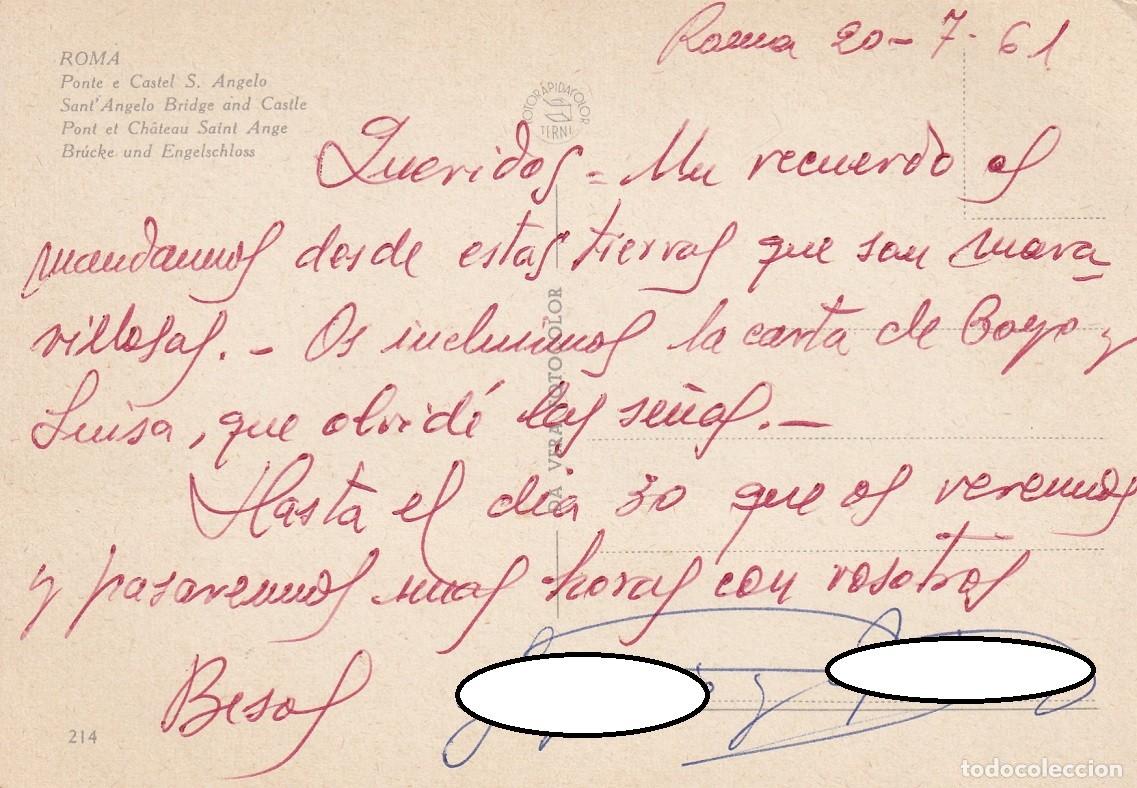 Roma 20-7-61
ROMA
Ponte e Castel S. Angelo
Sant'Angelo Bridge and Castle
Pont et Château Saint Ange
Brücke und Engelschloss
FOTORAPIDACOLOR
TERNI
Queridos = Un recuerdo os
mandamos desde estas tierras que son mara
villosas. - Os incluimos la carta de Goyo y
Luisa, que olvidé las señas. -
Hasta el dia 30 que os veremos
y pasaremos unas horas con vosotros
Besos
y
VERA FOTOCOLOR
214
todocoleccion